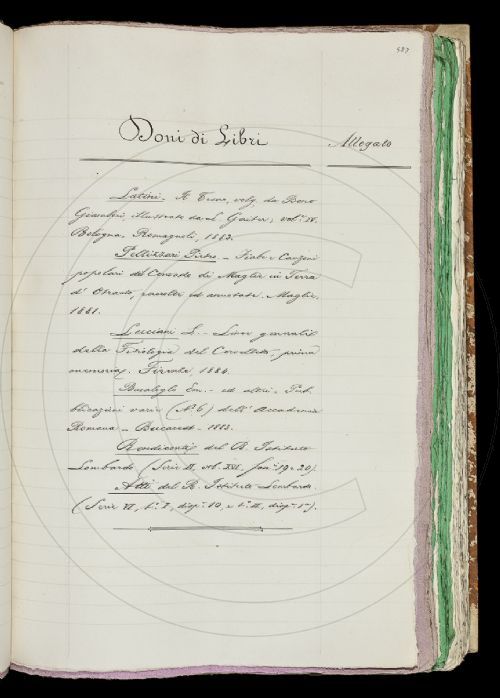 587
Doni di Libri
Allegato
Latini. Il Tesoro, volg. da Bono
Giamboni, illustrato da L. Gaiter, vol. IV.
Bologna, Romagnoli, 1883.
Pellizzari Pietro - Fiabe e Canzoni
popolari del Contado di Maglie in Terra
d'Otranto, raccolti ed annotate. Maglie,
1881.
Luciani L. - Linee generali
della Fisiologia del Cervelletto, prima
memoria. Firenze, 1884.
Em. - ed altri - Pub-
blicazioni varie (N. 6) dell'Accademia
Romana - Bucarest - 1883.
Rendiconti del R. Istituto
Lombardo (Serie II, vol. XVI, fasc. 19 e 20).
Atti del R. Istituto Lombardo
(Serie VI, t. I, disp. 10, e t. II, disp. 1ª).